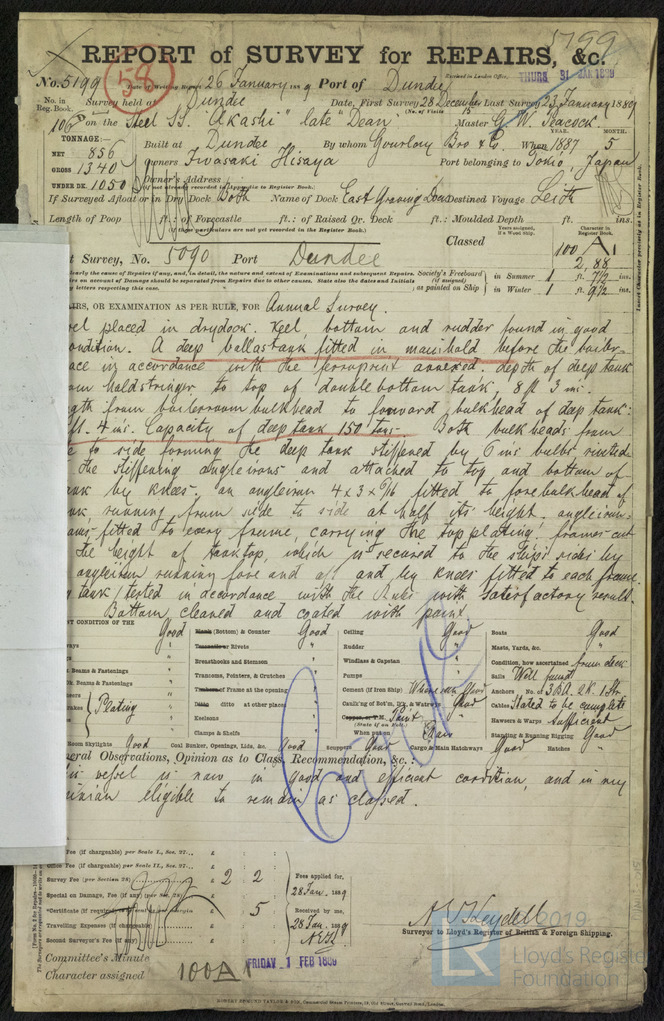 5199
REPORT of SURVEY for REPAIRS, &c.
No. 5199 58 Date of Writing Report 26 January 1889 Port of Dundee Received in London Office, THURS 31 JAN 1889
No. in Reg. Book. Survey held at Dundee Date, First Survey 28 December Last Survey 23 January 1889
106 on the Steel SS. "Akashi" late "Dean" (No. of Visits) Master G. W. Peacock
TONNAGE: Built at Dundee By whom Gourlay Bro & Co. When 1887 YEAR. MONTH. 5
NET 856
GROSS 1340 Owners Iwasaki Hisaya Port belonging to Tokio, Japan
UNDER DK. 1050 Owner's Address
(if not already recorded in Appendix to Register Book.)
If Surveyed Afloat or in Dry Dock Both Name of Dock East Graving Dock Destined Voyage Leith
Length of Poop ft.: of Forecastle ft.: of Raised Qr. Deck ft.: Moulded Depth ft. ins.
(if these particulars are not yet recorded in the Register Book.)
Years assigned, if a Wood ship. Character in Register Book.
Classed 100 A1
2,88
t Survey, No. 5090 Port Dundee
Society's Freeboard (if assigned) as painted on Ship in Summer 1 ft. 7 1/2 ins.
in Winter 1 ft. 9 1/2 ins.
Insert Character precisely as in Register Book.
AIRS, OR EXAMINATION AS PER RULE, FOR Annual Survey.
el placed in drydock. Keel bottom and rudder found in good
ondition. A deep ballastank fitted in mainhold before the boiler-
ace in accordance with the forsprint annexed. depth of deep tank
om holdstringer to top of double bottom tank, 8 ft 3 ins.
gth from boilerroom bulkhead to forward bulkhead of deep tank:
ft. 4 ins. Capacity of deep tank 150 tons. Both bulkheads from
e to side forming the deep tank stiffened by 6 ins bulbs riveted
the stiffening angleirons and attached to top and bottom of
ank by knees. an angleiron 4 x 3 x 6/16 fitted to forebulkhead of
nk running from side to side at half its height. angleiron-
ams fitted to every frame, carrying the top plating. frames cut
the height of tanktop, which is secured to the ship's sides by
angleiron running fore and aft and by knees fitted to each frame.
tank tested in accordance with the Rules with satisfactory result.
Bottom cleaned and coated with paint
NT CONDITION OF THE
Good (Bottom) & Counter Good Ceiling Good Boats Good
or Rivets " Rudder " Masts, Yards, &c. "
Breasthooks and Stemson " Windlass & Capstan " Condition, how ascertained from deck
Beams & Fastenings " Transoms, Pointers, & Crutches " Pumps " Sails Well found
Beams & Fastenings " of Frame at the opening " Cement (if Iron Ship) Where seen Good Anchors No. of 3 BA. 2K. 1 Str.
Plating Ditto ditto at other places " Caulking of Sot'ms, D'k. & Watrwys Good Cables Stated to be complete
Keelsons " Paint Hawsers & Warps Sufficient
Clamps & Shelfs " When put on Now Standing & Running Rigging Good
Room Skylights Good Coal Bunker, Openings, Lids, &c. Good Scuppers Good Cargo & Main Hatchways Good Hatches "
eral Observations, Opinion as to Class, Recommendation, &c. :
is vessel is now in good and efficient condition, and in my
inion eligible to remain as classed.
Fee (if chargeable) per Scale I., Sec. 27... £
Office Fee (if chargeable) per Scale II., Sec. 27... £
Survey Fee (per Section 28) £ 2 2 Fees applied for, 28 Jan. 1889
Special on Damage, Fee (if any) £
*Certificate (if required) £ 5 Received by me, 28 Jan. 1889
Travelling Expenses (if chargeable) £
Second Surveyor's Fee (if any) £
Surveyor to Lloyd's Register of British & Foreign Shipping.
Committee's Minute FRIDAY 1 FEB 1889
Character assigned 100A1
ROBERT EDMUND TAYLOR & SON,
2019
LR
Lloyd's Register
Foundation